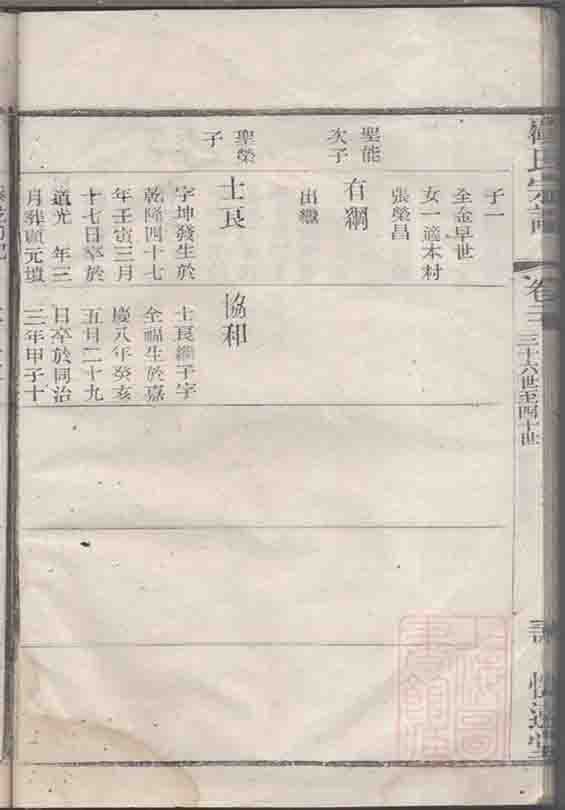 氏宗譜
卷三
三十六世至四十世
子一
全金早世
女一適本村
張榮昌
聖能
次子
有綱
出繼
聖榮
子
士良
字坤發生於
乾隆四十七
年壬寅三月
十七日卒於
道光 年三
月葬頭元墳
協和
士良繼子字
全福生於嘉
慶八年癸亥
五月二十九
日卒於同治
三年甲子十